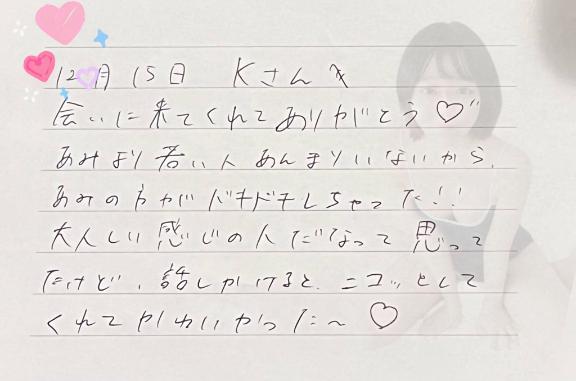 12月15日 Kさんへ
会いに来てくれてありがとう♡"
あみより若い人あんまりいないから、
あみの方がドキドキしちゃった!!
大人しい感じの人だなって思って
たけど、話しかけると、ニコッとして
くれてかわいかった〜♡